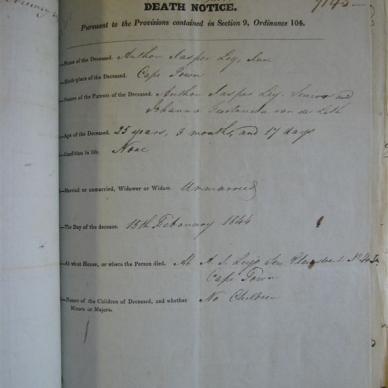 DEATH NOTICE.
Pursuant to the Provisions contained in Section 9, Ordinance 104.
—Name of the Deceased. Arthor Jasper Ley, Jun
—Birth-place of the Deceased. Cape Town
—Names of the Parents of the Deceased. Arthor Jasper Ley. Senior and
Johanna van de Leth
—Age of the Deceased. 25 years, 3 months, and 17 days
—Condition in life. None
—Married or unmarried, Widower or Widow. Unmarried
—The Day of the decease. 13th February 1844
—At what House, or where the Person died. At A. J. Leys Sen
Cape Town
—Names of the Children of Deceased, and whether No Children
Minors or Majors.